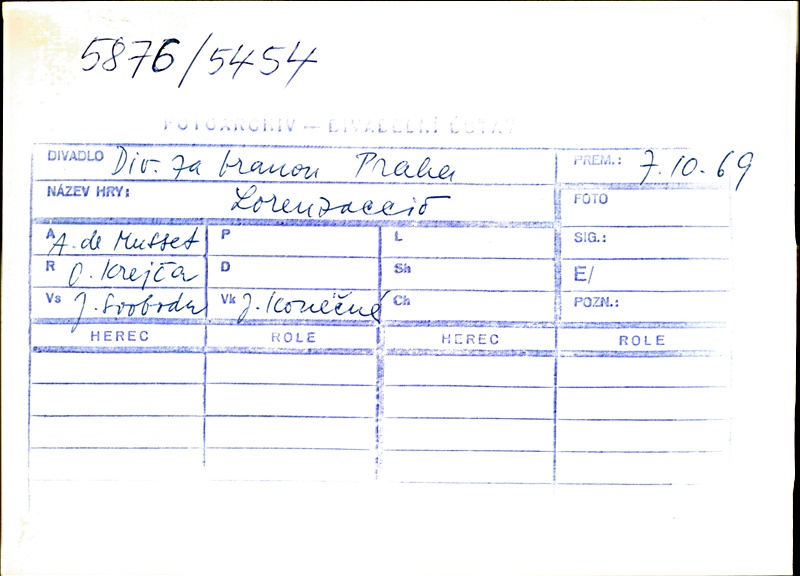 5876/5454
FOTOARCHIV — DIVADELNÍ ÚSTAV
DIVADLO Div. za branou Praha PREM.: 7.10.69
NÁZEV HRY: Lorenzaccio FOTO
A A. de Musset P L SIG.:
R O. Krejča D Sh E/
Vs J. Svoboda Vk J. Konečné Ch POZN.:
HEREC ROLE HEREC ROLE